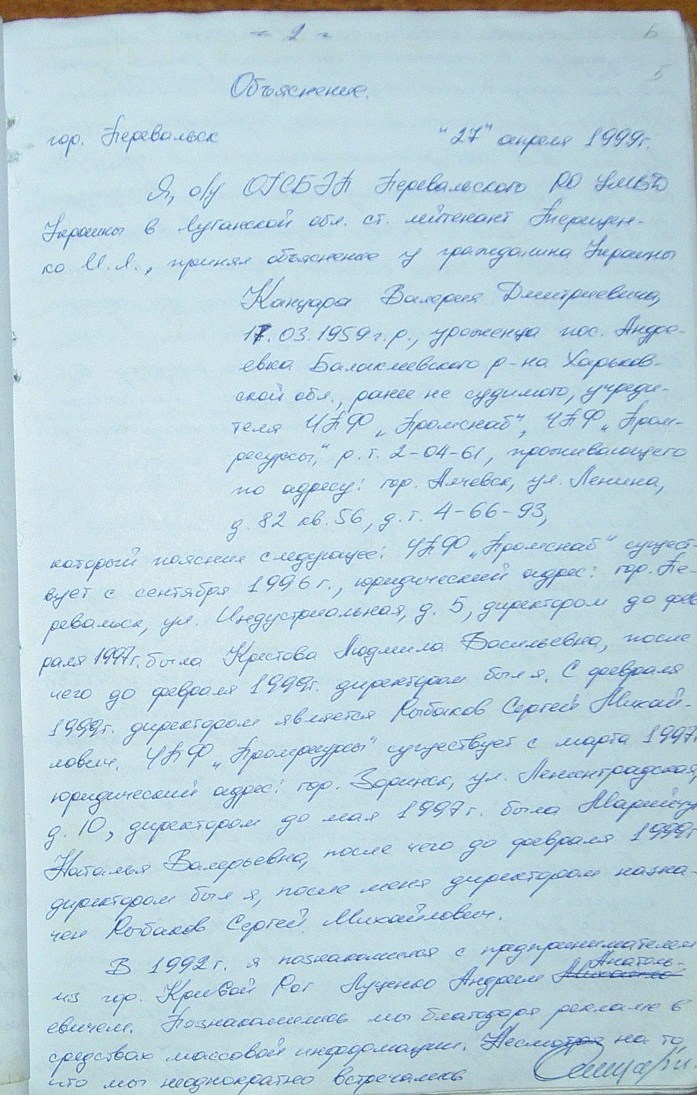 - 2 -
6
5
Объяснение.
гор. Перевальск "27" апреля 1999г.
Я, о/у ОГСБЭП Перевальского РО УМВД
Украины в Луганской обл. ст. лейтенант Терещен-
ко И.Л., принял объяснение у гражданина Украины
Канцара Валерия Дмитриевича,
17.03.1959г.р., уроженца пос. Андре-
евка Балаклеевского р-на Харьков-
ской обл., ранее не судимого, учреди-
теля ЧПФ „Промснаб", ЧПФ „Пром-
ресурсы", р.т. 2-04-61, проживающего
по адресу: гор. Алчевск, ул. Ленина,
д. 82 кв. 56, д.т. 4-66-93,
который пояснил следующее: ЧПФ „Промснаб" сущест-
вует с сентября 1996г., юридический адрес: гор. Пе-
ревальск, ул. Индустриальная, д. 5, директором до фев
раля 1997г. была Кристова Людмила Васильевна, после
чего до февраля 1999г. директором был я. С февраля
1999г. директором является Рыбаков Сергей Михай-
лович. ЧПФ „Промресурсы" существует с марта 1997г
юридический адрес: гор. Зоринск, ул. Ленинградская,
д. 10, директором до мая 1997г. была
Наталья Валерьевна, после чего до февраля 1999г
директором был я, после меня директором назна-
чен Рыбаков Сергей Михайлович.
В 1992г. я познакомился с предпринимателем
из гор. Кривой Рог Луценко Андреем Анатоль-
евичем. Познакомились мы благодаря рекламе в
средствах массовой информации. Несмотря на то,
что мы неоднократно встречались